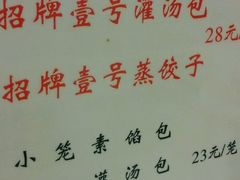 招牌壹号灌汤包
28元/
招牌壹号蒸饺子
小笼素馅包
灌汤包 23元/笼